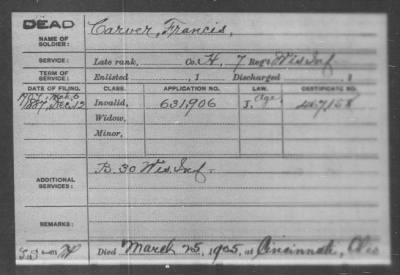 DEAD
NAME OF SOLDIER: Carver, Francis,
SERVICE: Late rank, Co. H, 7 Reg't Wis Inf
TERM OF SERVICE: Enlisted , 1 Discharged , 1
DATE OF FILING. CLASS. APPLICATION NO. LAW. CERTIFICATE NO.
1887, Dec. 12 Invalid, 631,906 J. Age.
Widow,
Minor,
ADDITIONAL SERVICES: B. 30 Wis. Inf.
REMARKS:
Died March 25, 1905, at Cincinnati, Ohio